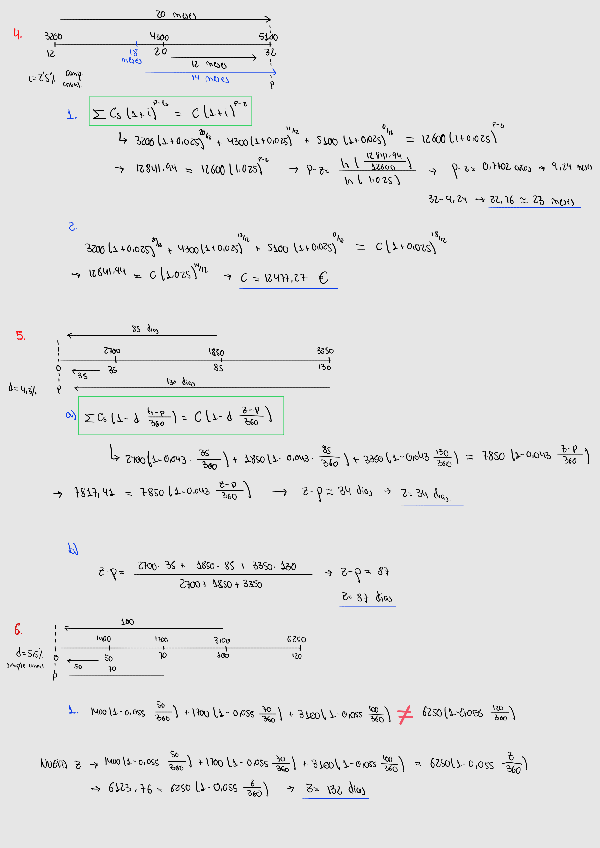 20 meses
4.
3200 4300 5100
12 18 meses 20 32
12 meses
i=2'5% comp anual 14 meses P
1. ∑ Cs (1+i)^p-ts = C (1+i)^p-z
↳ 3200 (1+0,025)^20/12 + 4300 (1+0,025)^12/12 + 5100 (1+0,025)^0/12 = 12600 (1+0,025)^p-z
→ 12841.94 = 12600 (1.025)^p-z → p-z = ln (12841.94/12600) / ln (1.025) → p-z = 0,7702 años → 9,24 meses
32-9,24 → 22,76 ≃ 23 meses
2.
3200 (1+0,025)^20/12 + 4300 (1+0,025)^12/12 + 5100 (1+0,025)^0/12 = C (1+0,025)^14/12
→ 12841.94 = C (1.025)^14/12 → C = 12477,27 €
5. 85 días
2700 1850 3350
0 35 85 130
35
d=4,3% P 130 días
a) ∑ Cs (1-d ts-p/360) = C (1-d z-p/360)
↳ 2700 (1-0,043 · 35/360) + 1850 (1-0,043 · 85/360) + 3350 (1-0,043 130/360) = 7850 (1-0,043 z-p/360)
→ 7817,41 = 7850 (1-0,043 z-p/360) → z-p = 34 días → z=34 días
b)
z-p = 2700 · 35 + 1850 · 85 + 3350 · 130 / 2700 + 1850 + 3350 → z-p = 87
z=87 días
6. 100
1400 1700 3100 6250
d=5,5% 0 50 70 100 120
simple comercial 50 70
P
1. 1400 (1-0,055 50/360) + 1700 (1-0,055 70/360) + 3100 (1-0,055 100/360) ≠ 6250 (1-0,055 120/360)
NUEVO z → 1400 (1-0,055 50/360) + 1700 (1-0,055 70/360) + 3100 (1-0,055 100/360) = 6250 (1-0,055 z/360)
→ 6123.76 = 6250 (1-0,055 z/360) → z= 132 días